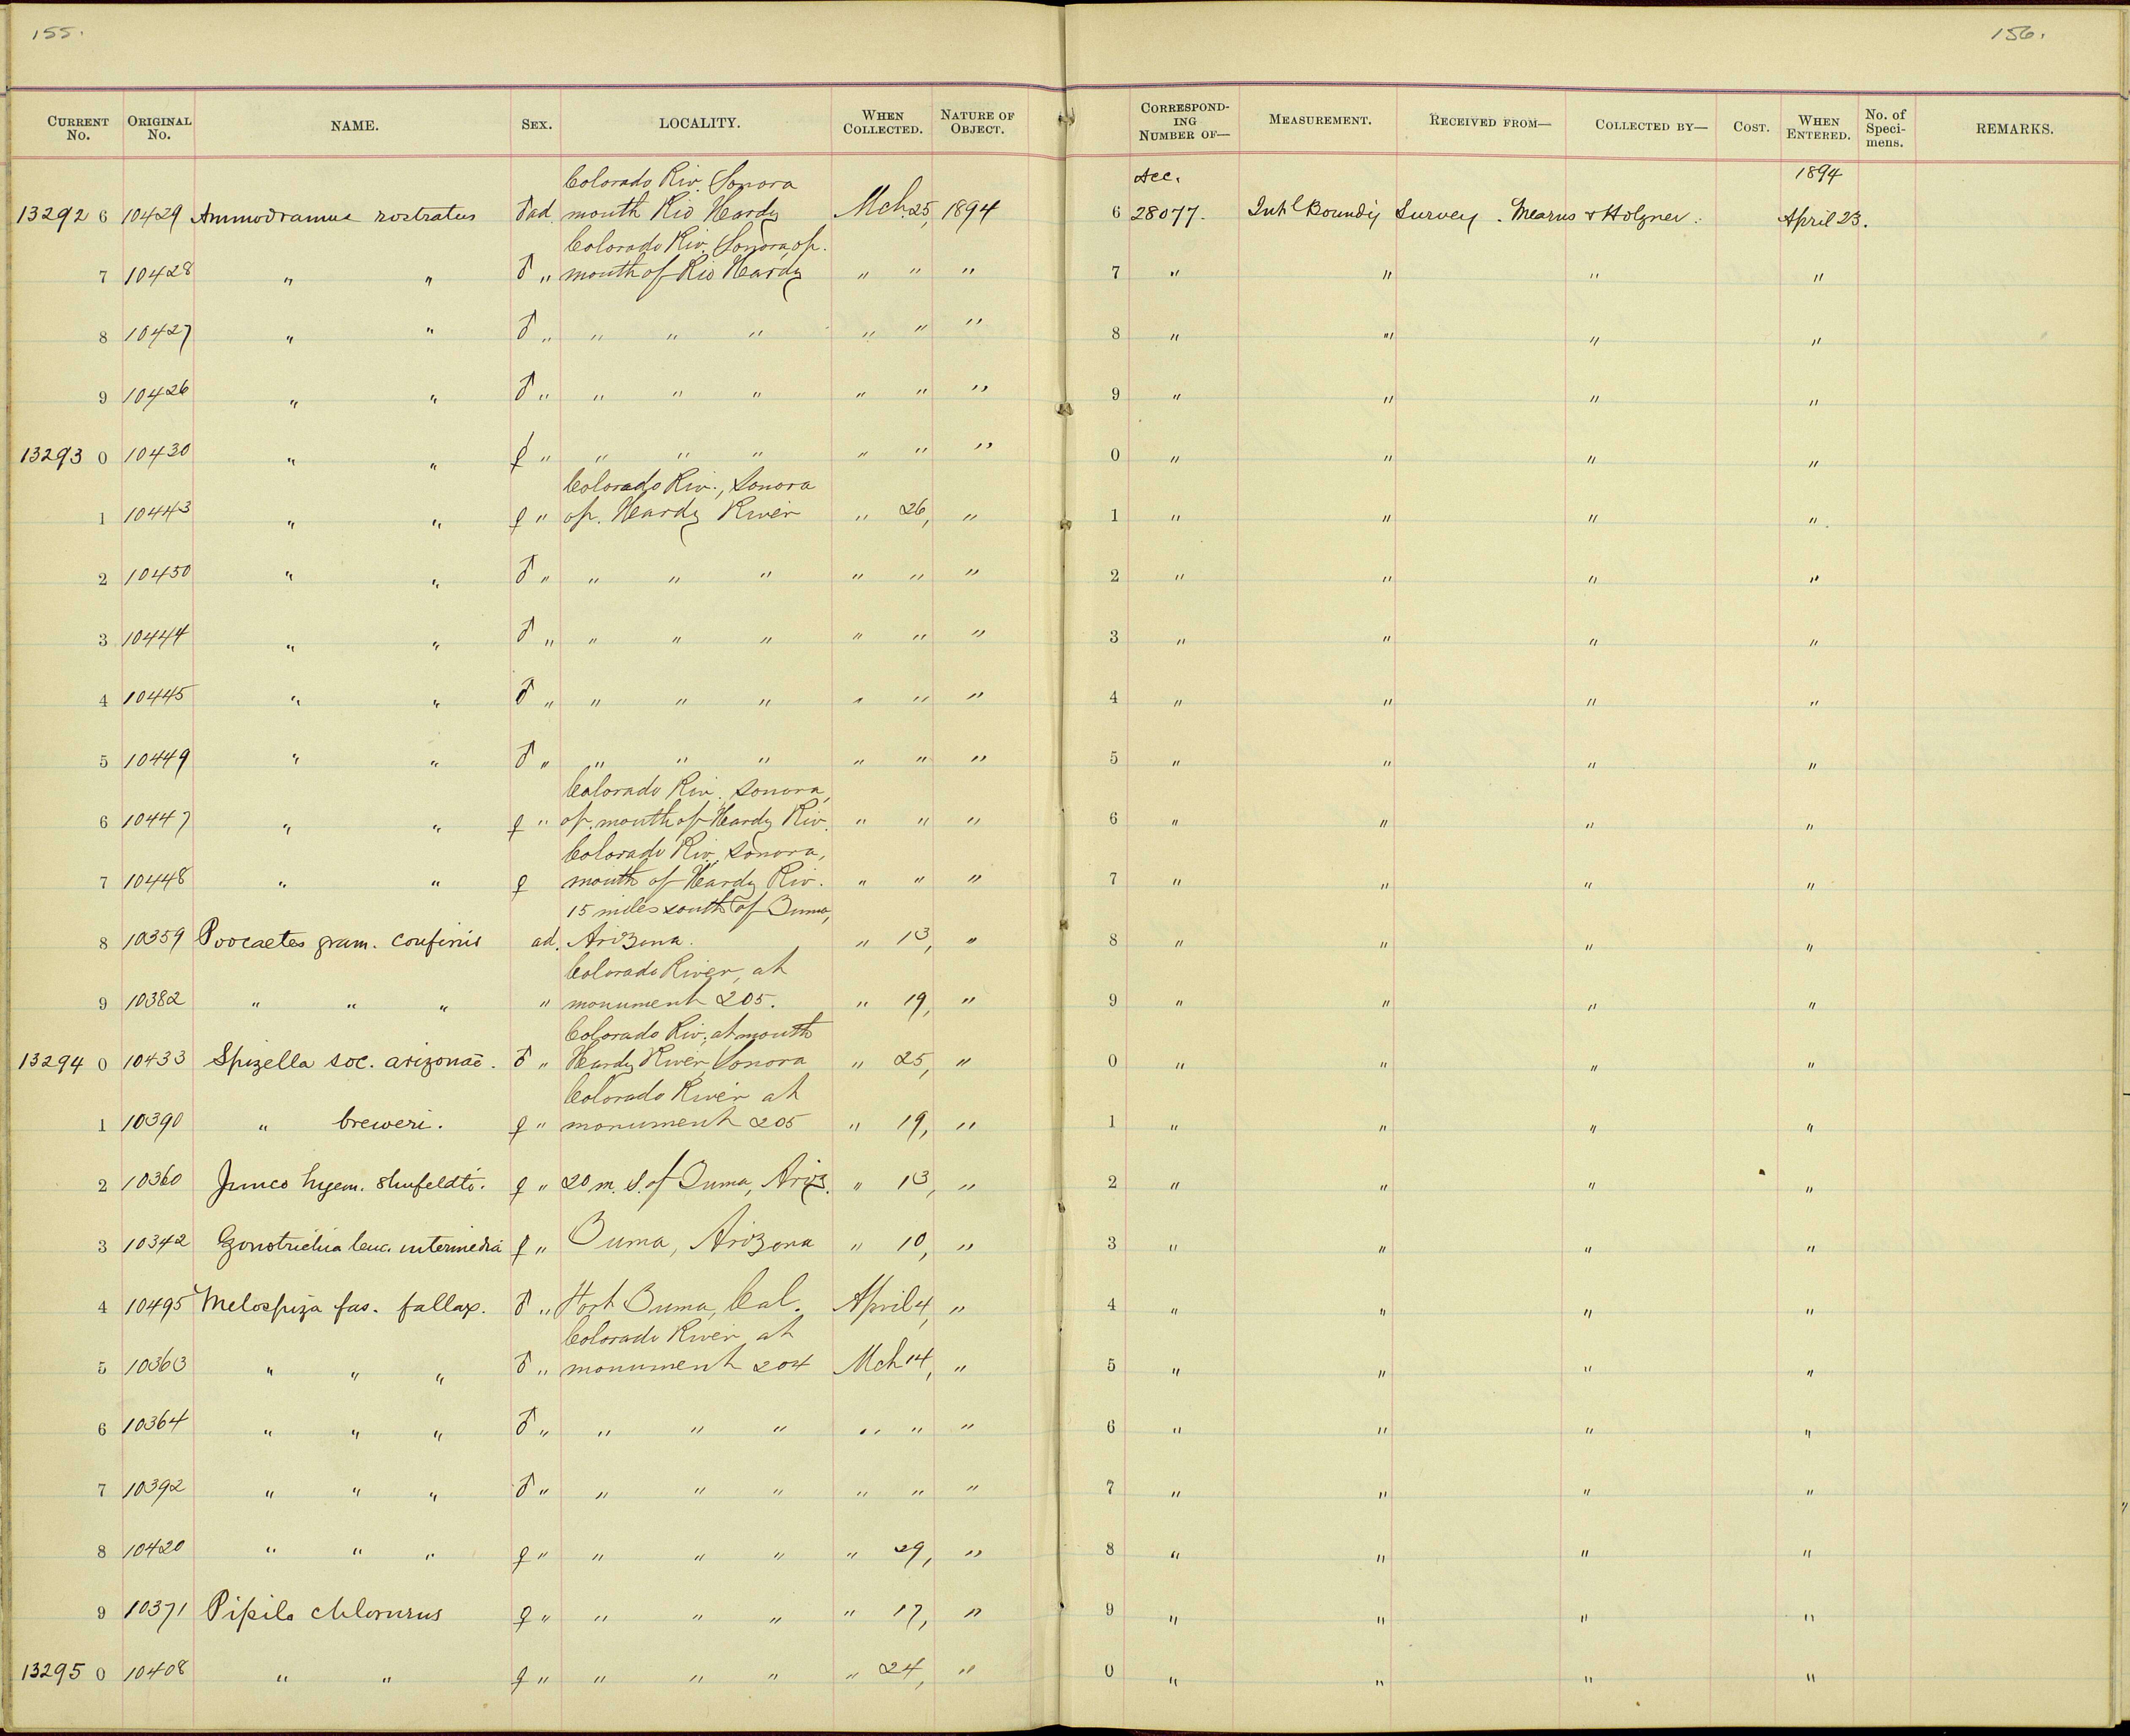 155.
156.
CURRENT No. ORIGINAL No. NAME. SEX. LOCALITY. WHEN COLLECTED. NATURE OF OBJECT. CORRESPONDING NUMBER OF— MEASUREMENT. RECEIVED FROM— COLLECTED BY— COST. WHEN ENTERED. No. of Specimens. REMARKS.
Colorado Riv. Sonora Acc. 1894
13292 6 10429 Ammodramus rostratus ♂ ad. mouth Rio Hardy Mch. 25, 1894 6 28077. Int'l Bound'y Survey. Mearns & Holzner. April 23.
Colorado Riv. Sonora, op.
7 10428 " " ♂ " mouth of Rio Hardy " " " 7 " " " "
8 10427 " " ♂ " " " " " " " 8 " " " "
9 10426 " " ♂ " " " " " " " 9 " " " "
13293 0 10430 " " ♀ " " " " " " " 0 " " " "
Colorado Riv., Sonora
1 10443 " " ♀ " op. Hardy River " 26, " 1 " " " "
2 10450 " " ♂ " " " " " " " 2 " " " "
3 10444 " " ♂ " " " " " " " 3 " " " "
4 10445 " " ♂ " " " " " " " 4 " " " "
5 10449 " " ♂ " " " " " " " 5 " " " "
Colorado Riv. Sonora,
6 10447 " " ♀ " op. mouth of Hardy Riv. " " " 6 " " " "
Colorado Riv., Sonora,
7 10448 " " ♀ mouth of Hardy Riv. " " " 7 " " " "
15 miles south of Yuma,
8 10359 Poocaetes gram. confinis ad. Arizona. " 13, " 8 " " " "
Colorado River, at
9 10382 " " " " monument 205. " 19, " 9 " " " "
Colorado Riv; at mouth
13294 0 10433 Spizella soc. arizonae. ♂ " Hardy River, Sonora " 25, " 0 " " " "
Colorado River at
1 10390 " breweri. ♀ " monument 205 " 19, " 1 " " " "
2 10360 Junco hyem. shufeldti. ♀ " 20 m. S. of Yuma, Ariz. " 13, " 2 " " " "
3 10342 Zonotrichia leuc. intermedia ♀ " Yuma, Arizona " 10, " 3 " " " "
4 10495 Melospiza fas. fallax. ♂ " Fort Yuma, Cal. April 4, " 4 " " " "
Colorado River at
5 10363 " " " ♂ " monument 204 Mch 14, " 5 " " " "
6 10364 " " " ♂ " " " " " " " 6 " " " "
7 10392 " " " ♂ " " " " " " " 7 " " " "
8 10420 " " " ♀ " " " " " 29, " 8 " " " "
9 10371 Pipilo chlorurus ♀ " " " " " 17, " 9 " " " "
13295 0 10408 " " ♀ " " " " " 24, " 0 " " " "